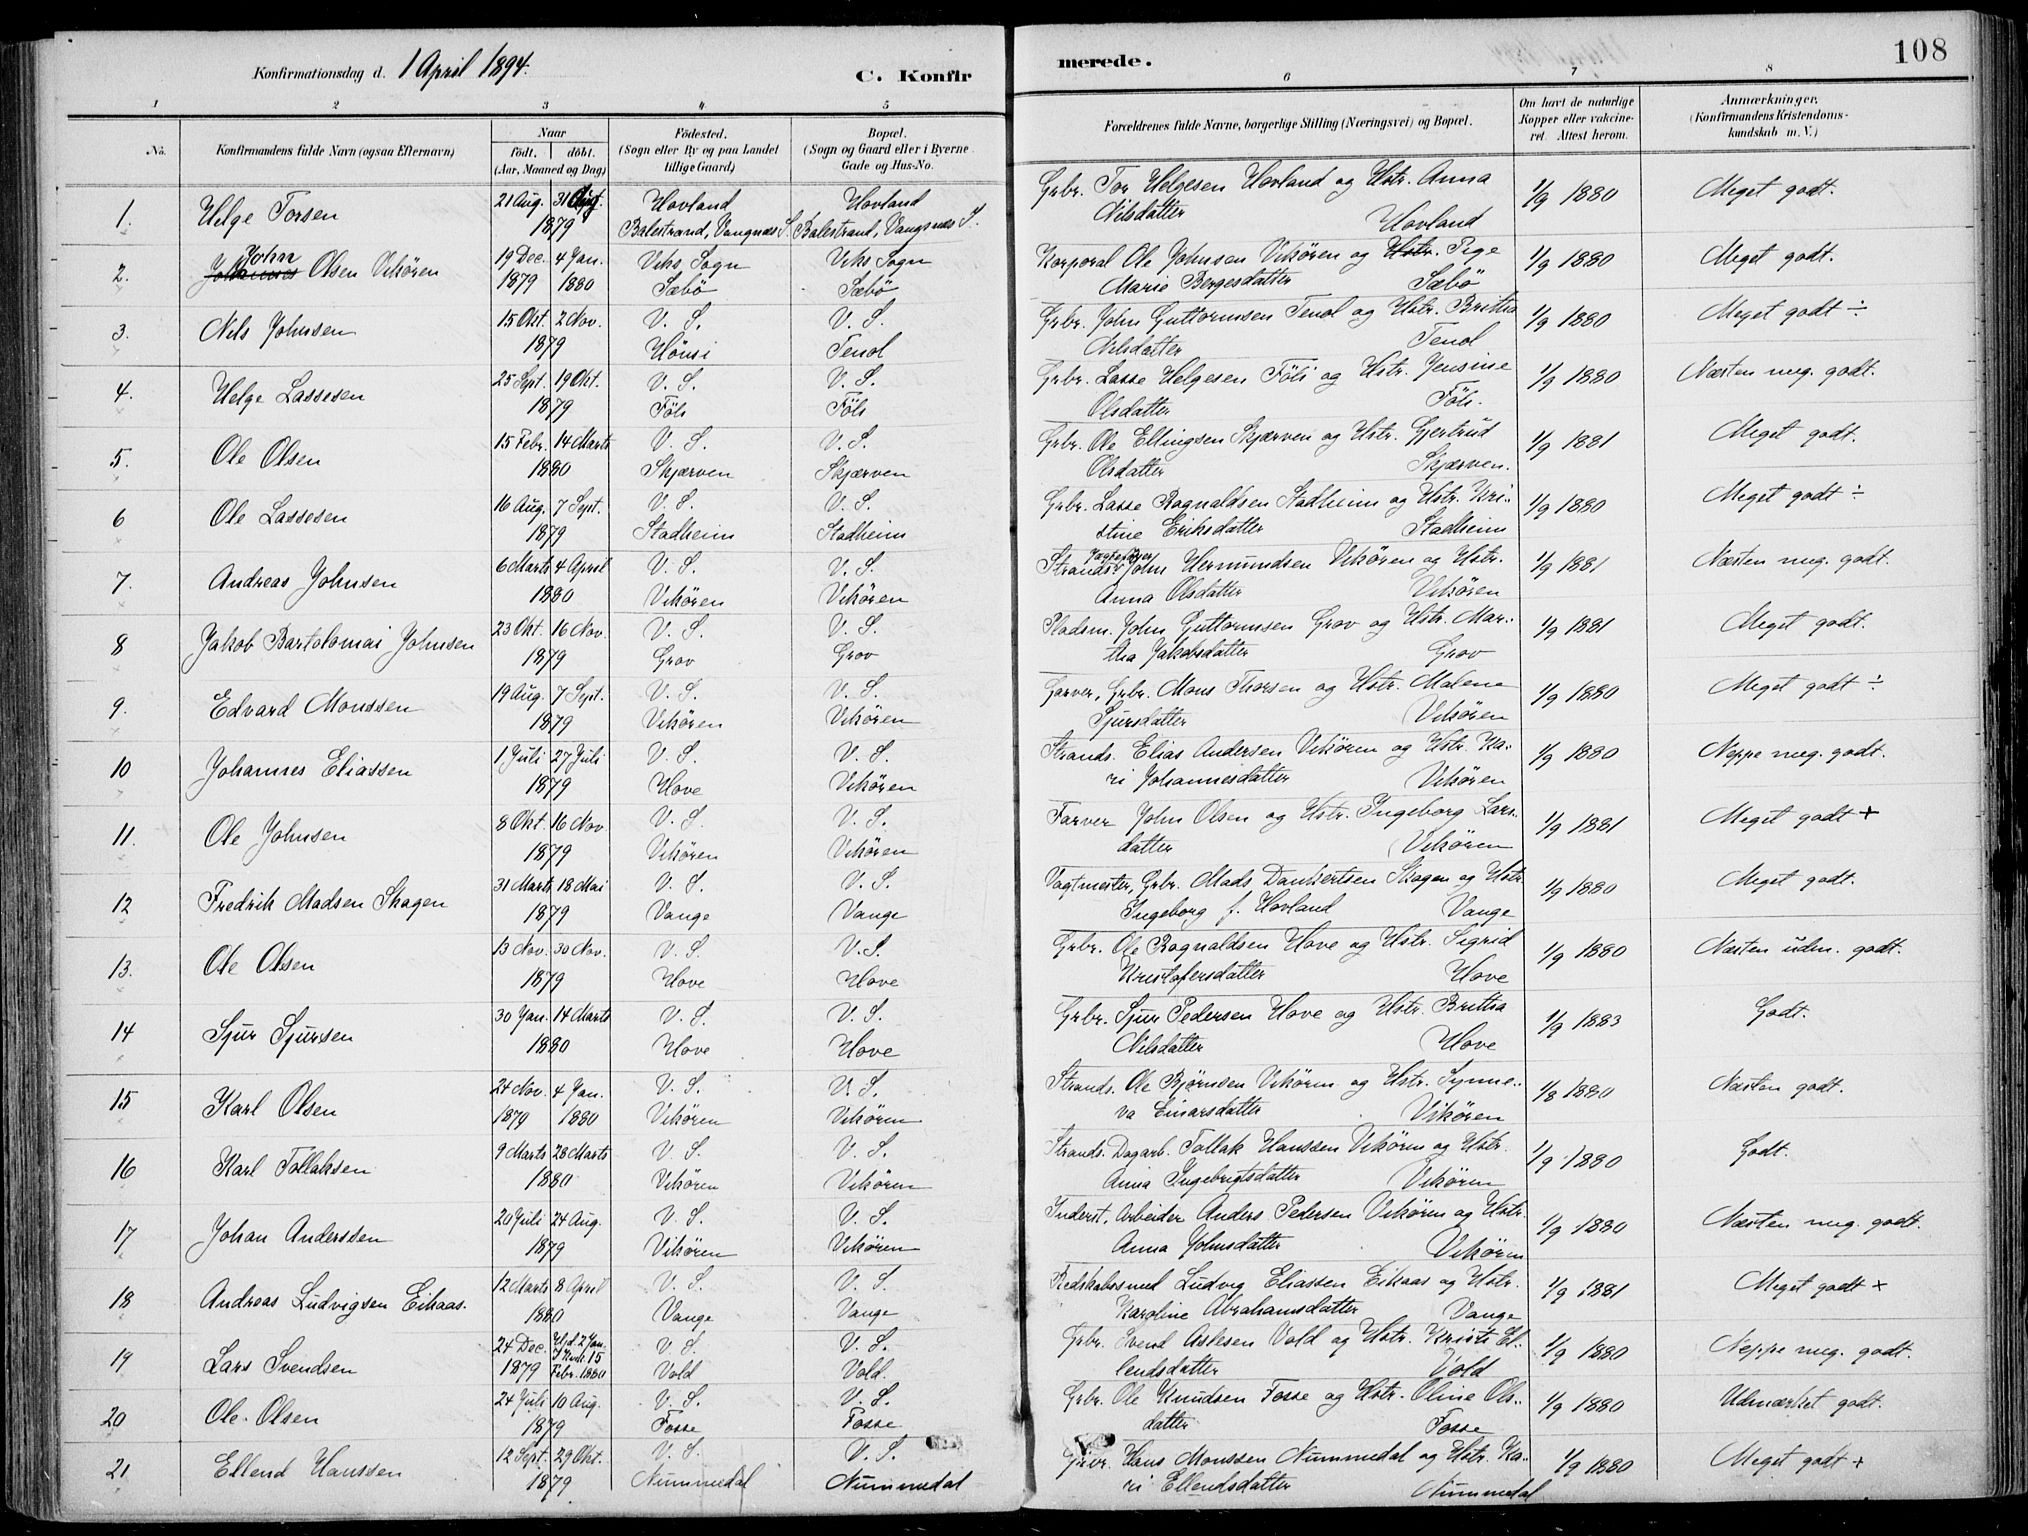 Konfirmationsdag d. 1 April 1894.
C. Konfir
merede.
108
1 2 3 4 5 6 7 8
No.
Konfirmandens fulde Navn (ogsaa Efternavn)
Naar
födt. döbt.
(Aar, Maaned og Dag)
Födested.
(Sogn eller By og paa Landet
tillige Gaard)
Bopæl.
(Sogn og Gaard eller i Byerne
Gade og Hus-No.
Forældrenes fulde Navne, borgerlige Stilling (Næringsvei) og Bopæl.
Om havt de naturlige
Kopper eller vakcine-
ret. Attest herom.
Anmærkninger.
(Konfirmandens Kristendoms-
kundskab m. V.)
1. Helge Torsen 21 Aug. 31 Aug. Hovland Hovland Grbr. Tor Helgesen Hovland og Hstr. Anna 1/9 1880 Meget godt.
1879 Balestrand, Vangnæs S. Balestrand, Vangsnæs S. Nilsdatter Hovland
2. John Johannes Olsen Vikören 19 Dec. 4 Jan. Viks Sogn Viks Sogn Korporal Ole Johnsen Vikören og Hstr. Pige 1/9 1880 Meget godt.
1879 1880 Sæbö Sæbö Marie Bergesdatter Sæbö
3. Nils Johnsen 15 Okt. 2 Nov. V. S. V. S. Grbr. John Guttormsen Tenol og Hstr. Brittha 1/9 1880 Meget godt ÷
1879 Hönsi Tenol Nilsdatter Tenol
4. Helge Lassesen 25 Sept. 19 Okt. V. S. V. S. Grbr. Lasse Helgesen Föli og Hstr. Jensine 1/9 1880 Næsten meg. godt.
1879 Föli Föli Olsdatter Föli.
5. Ole Olsen 15 Febr. 14 Marts V. S. V. S. Grbr. Ole Ellingsen Skjærven og Hstr. Gjertrud 1/9 1881 Meget godt.
1880 Skjærven Skjærven Olsdatter Skjærven.
6 Ole Lassesen 16 Aug. 7 Sept. V. S. V. S. Grbr. Lasse Ragnaldsen Stadheim og Hstr. Kri- 1/9 1880 Meget godt ÷
1879 Stadheim Stadheim stine Eriksdatter Stadheim
7. Andreas Johnsen 6 Marts 4 April V. S. V. S. Strands. John Hermundsen Vikören og Hstr. 1/9 1881 Næsten meg. godt.
1880 Vikören Vikören Anna Olsdatter Vikören
8 Jakob Bartolomai Johnsen 23 Okt. 16 Nov. V. S. V. S. Pladsm. John Guttormsen Grov og Hstr. Mar- 1/9 1881 Meget godt.
1879 Grov Grov tha Jakobsdatter Grov
9. Edvard Monssen 19 Aug. 7 Sept. V. S. V. S. Garver, Grbr. Mons Thorsen og Hstr. Malene 1/9 1880 Meget godt ÷
1879 Vikören Vikören Sjursdatter Vikören
10 Johannes Eliassen 1 Juli 27 Juli V. S. V. S. Strands. Elias Andersen Vikören og Hstr. Ka- 1/9 1880 Neppe meg. godt.
1879 Hove Vikören ri Johannesdatter Vikören
11. Ole Johnsen 8 Okt. 16 Nov. V. S. V. S. Farver John Olsen og Hstr. Ingeborg Lars- 1/9 1881 Meget godt +
1879 Vikören Vikören datter Vikören
12 Fredrik Madsen Skagen 31 Marts 18 Mai V. S. V. S. Vagtmester, Grbr. Mads Dankertsen Skagen og Hstr. 1/9 1880 Meget godt.
1879 Vange Vange Ingeborg f. Hovland Vange
13. Ole Olsen 13 Nov. 30 Nov. V. S. V. S. Grbr. Ole Ragnaldsen Hove og Hstr. Sigrid 1/9 1880 Næsten udm. godt.
1879 Hove Hove Kristofersdatter Hove
14 Sjur Sjursen 30 Jan. 14 Marts V. S. V. S. Grbr. Sjur Pedersen Hove og Hstr. Brittha 1/9 1883 Godt.
1880 Hove Hove Nilsdatter Hove
15 Karl Olsen 24 Nov. 4 Jan. V. S. V. S. Strands. Ole Bjørnsen Vikören og Hstr. Synne- 1/8 1880 Næsten godt.
1879 1880 Vikören Vikören va Einarsdatter Vikören
16 Karl Tollaksen 9 Marts 28 Marts V. S. V. S. Strands. Dagarb. Tollak Hanssen Vikören og Hstr. 1/9 1880 Godt.
1880 Vikören Vikören Anna Ingebrigtsdatter Vikören
17 Johan Anderssen 20 Juli 24 Aug. V. S. V. S. Inderst, Arbeider Anders Pedersen Vikören og Hstr. 1/9 1880 Næsten meg. godt.
1879 Vikören Vikören Anna Johnsdatter Vikören
18 Andreas Ludvigsen Eikaas. 12 Marts 8 April V. S. V. S. Redskabssmed Ludvig Eliassen Eikaas og Hstr. 1/9 1881 Meget godt +
1880 Vange Vange Karoline Abrahamsdatter Vange
19 Lars Svendsen 24 Dec. Hjd. 2 Jan. V. S. V. S. Grbr. Svend Aslesen Vold og Hstr. Kristi El- 1/9 1880 Neppe meg. godt.
1879 I Kirk. 15 Febr. 1880 Vold Vold. lendsdatter Vold
20 Ole Olsen 24 Juli 10 Aug. V. S. V. S. Grbr. Ole Knudsen Fosse og Hstr. Oline Ols- 1/9 1880 Udmærket godt.
1879 Fosse Fosse datter Fosse
21 Ellend Hanssen 12 Sept. 29 Okt. V. S. V. S. Hans Monssen Nummedal og Hstr. Ka- 1/9 1880 Meget godt +
1879 Nummedal Nummedal ri Ellendsdatter Nummedal